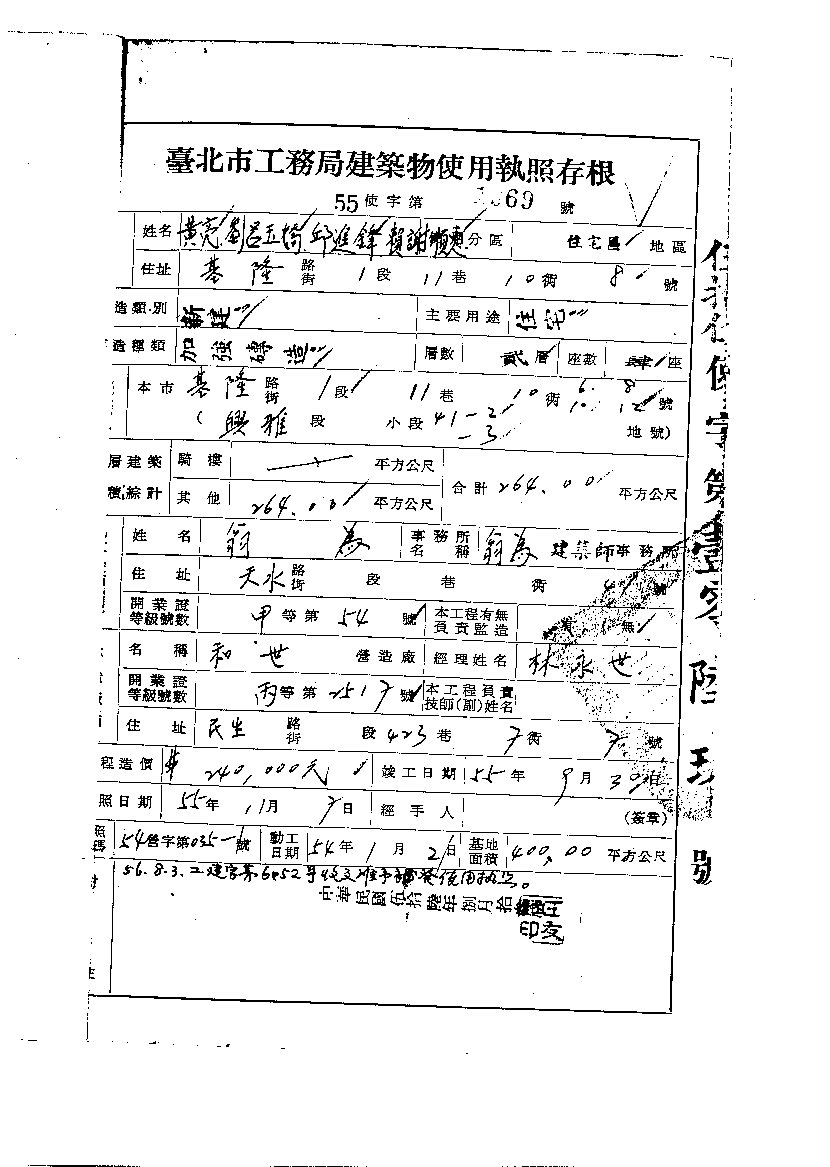 臺北市工務局建築物使用執照存根
55使字第 1069 號
姓名 黃亮 劉 呂玉椅 邱進鋒 賴謝 分區 住宅區 地區
住址 基隆 路街 1段 11巷 10衖 8 號
造類別 新建 主要用途 住宅
造種類 加強磚造 層數 貳層 座數 肆座
本市 基隆 路街 1段 11巷 10衖 6. 8 10. 12 號
( 興雅 段 小段 41-2 -3 地號)
層建築 騎樓 平方公尺 合計 264.00 平方公尺
積綜計 其他 264.00 平方公尺
姓名 翁為 事務所名稱 翁為 建築師事務所
住址 天水 路街 段 巷 衖 號
開業證等級號數 甲等第 54 號 本工程有無負責監造 無
名稱 和世 營造廠 經理姓名 林永世
開業證等級號數 丙等第 2517 號 本工程負責技師(副)姓名
住址 民生 路街 段 423巷 7衖 7 號
程造價 240,000元 竣工日期 55年 9月 30日
照日期 55年 11月 7日 經手人 (簽章)
照碼 54營字第035-1號 動工日期 54年 1月 2日 基地面積 400.00 平方公尺
56.8.3.
中華民國伍拾陸年捌月拾
印友
使字第壹零陸玖號